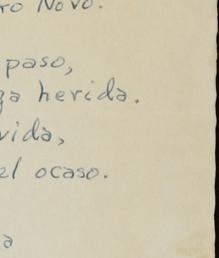 ro Novo.
paso,
ga herida.
vida,
el ocaso.
a